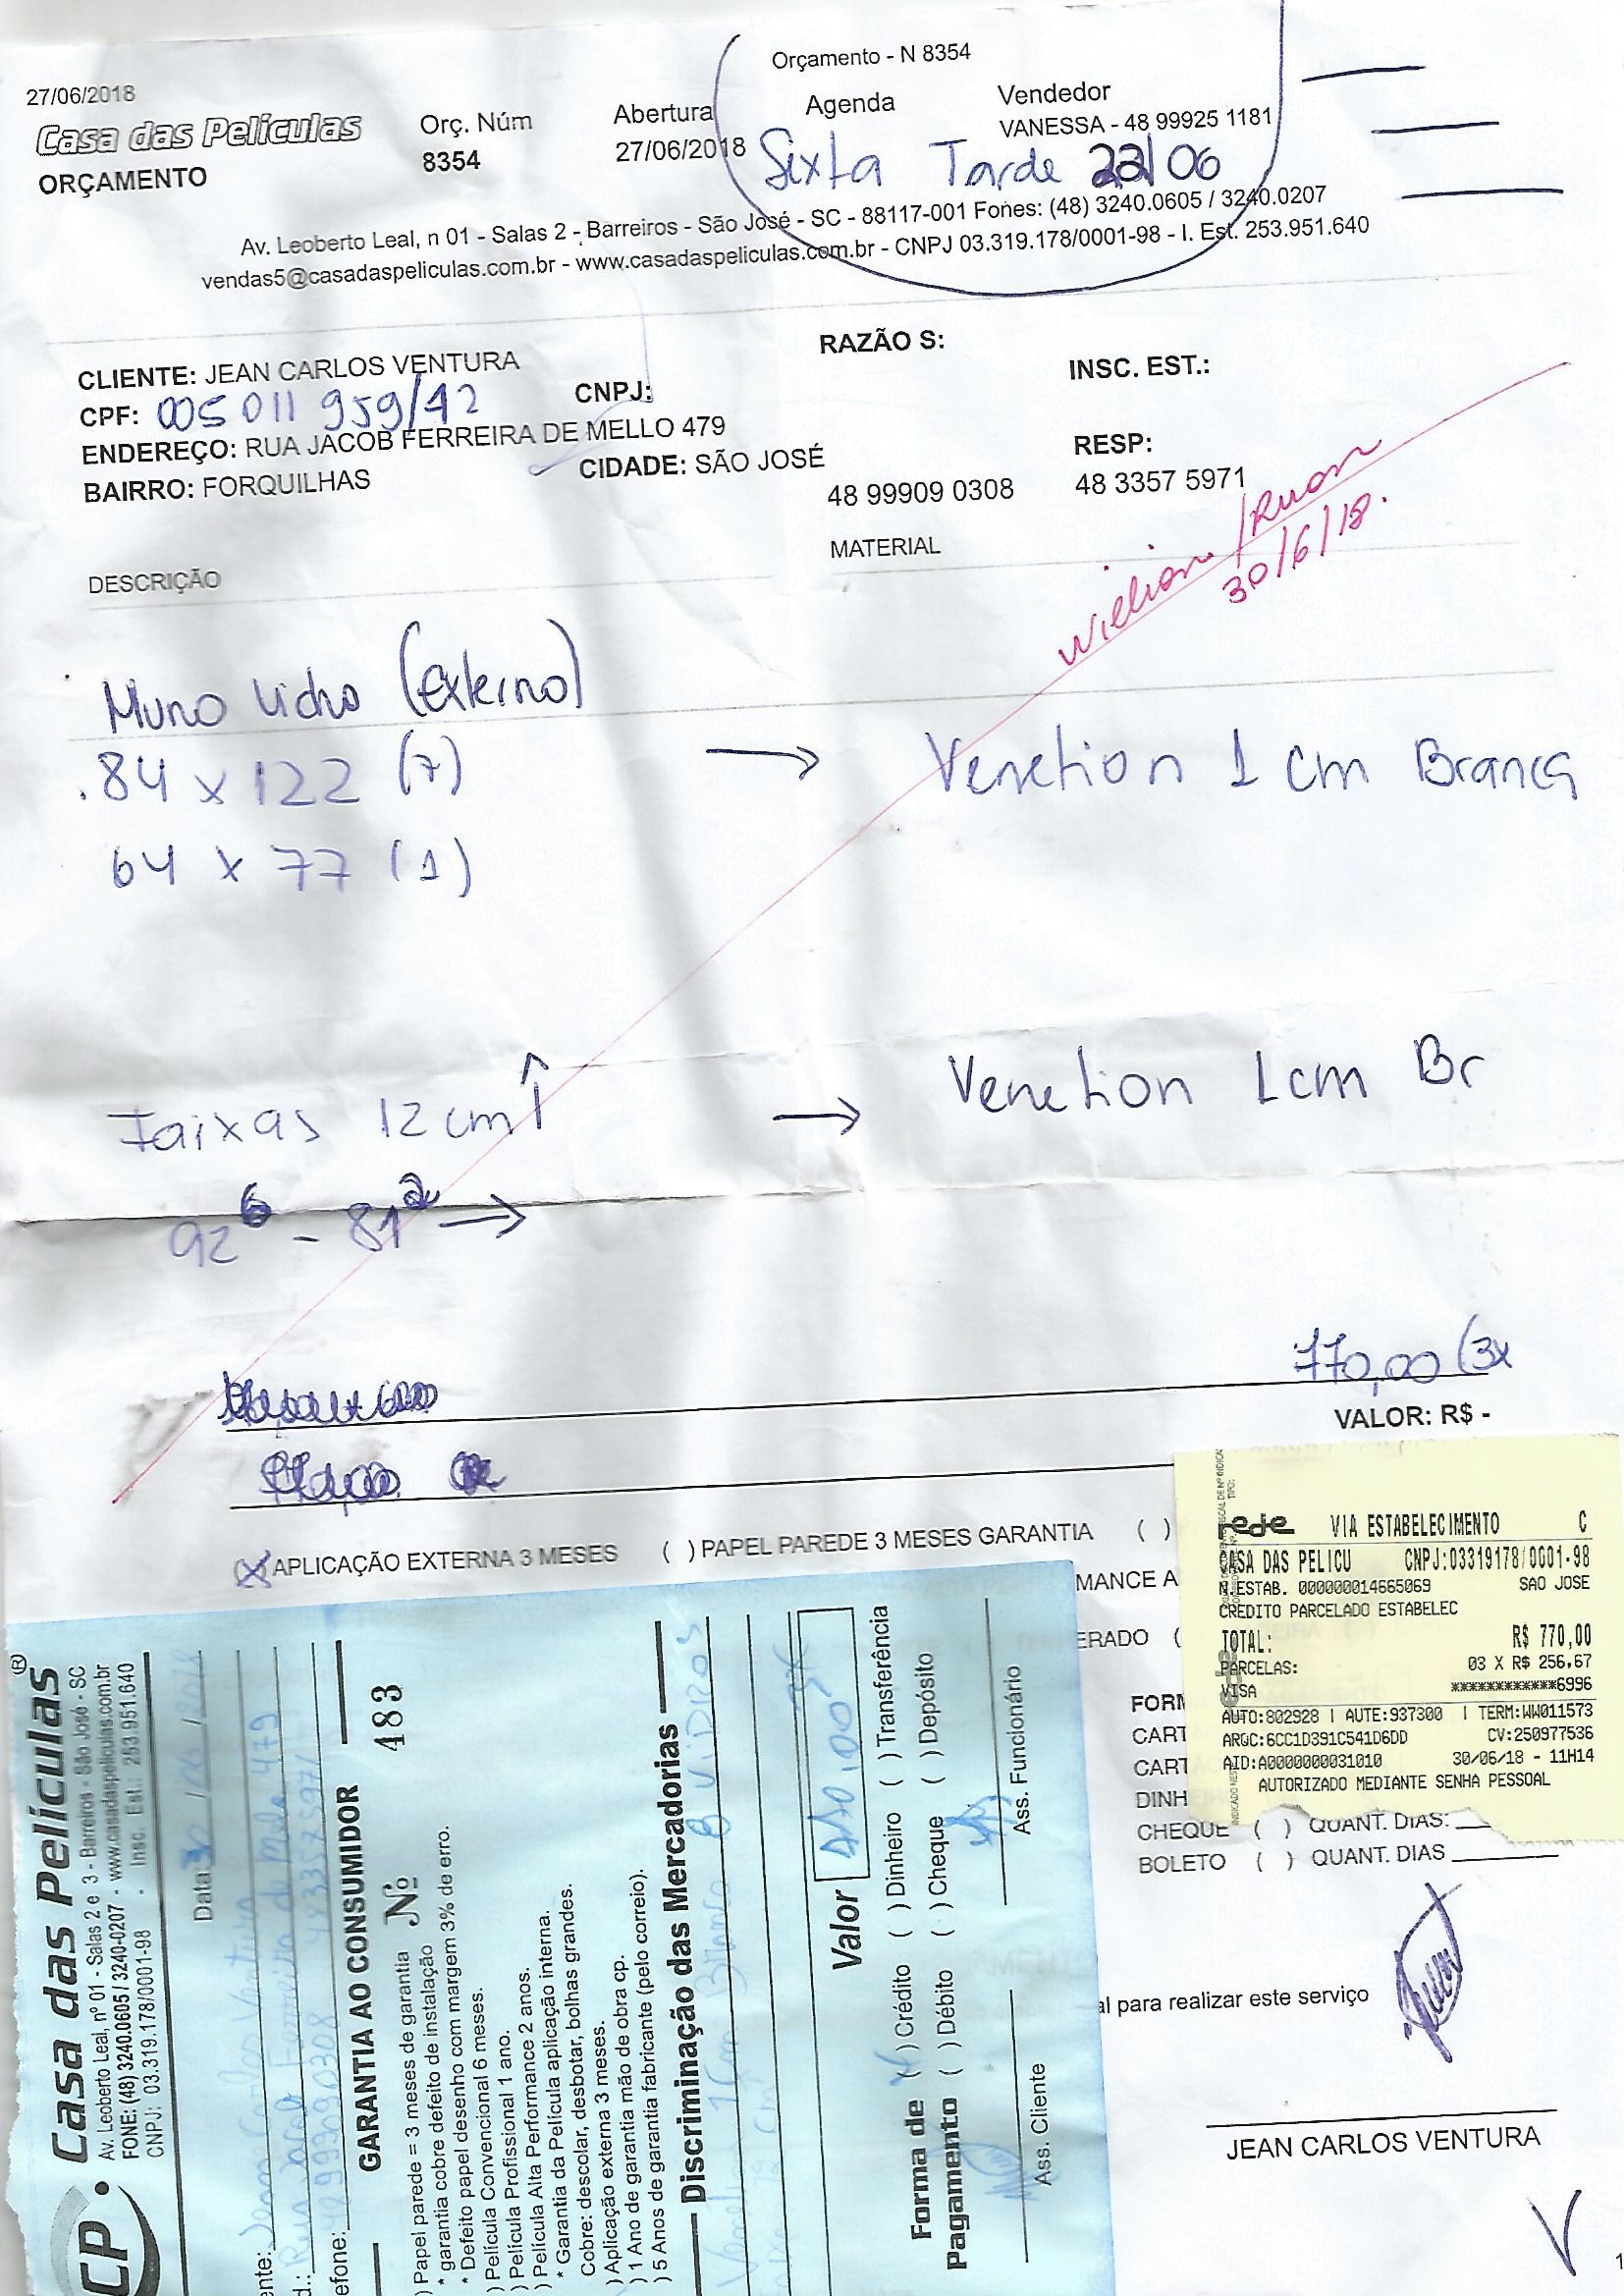 Orçamento - N 8354
27/06/2018
Casa das Películas
ORÇAMENTO
Orç. Núm
8354
Abertura
27/06/2018
Agenda
Sexta Tarde /06
Vendedor
VANESSA - 48 99925 1181
Av. Leoberto Leal, n 01 - Salas 2 - Barreiros - São José - SC - 88117-001 Fones: (48) 3240.0605 / 3240.0207
vendas5@casadaspeliculas.com.br - www.casadaspeliculas.com.br - CNPJ 03.319.178/0001-98 - I. Est. 253.951.640
CLIENTE: JEAN CARLOS VENTURA
RAZÃO S:
CPF: 005 011 959/42
CNPJ:
INSC. EST.:
ENDEREÇO: RUA JACOB FERREIRA DE MELLO 479
RESP:
BAIRRO: FORQUILHAS
CIDADE: SÃO JOSÉ
48 99909 0308
48 3357 5971
Wilian/Ruan
30/6/18.
DESCRIÇÃO
MATERIAL
Muro Vidro (Externo)
.84 x 122 (7)
→ Venetion 1 cm Branca
64 x 77 (1)
Faixas 12 cm ↑
→ Venetion 1cm Br
92 6 - 81 2 →
770,00 (3x
VALOR: R$ -
(X) APLICAÇÃO EXTERNA 3 MESES ( ) PAPEL PAREDE 3 MESES GARANTIA ( )
MANCE A
ERADO (
FORM
CART
CART
DINH
CHEQUE ( ) QUANT. DIAS:
BOLETO ( ) QUANT. DIAS
al para realizar este serviço
JEAN CARLOS VENTURA
1
rede VIA ESTABELECIMENTO C
CASA DAS PELICU CNPJ:03319178/0001-98
N.ESTAB. 000000014665069 SAO JOSE
CREDITO PARCELADO ESTABELEC
TOTAL: R$ 770,00
PARCELAS: 03 X R$ 256,67
VISA ************6996
AUTO:802928 | AUTE:937300 | TERM:WW011573
ARQC:6CC1D391C541D6DD CV:250977536
AID:A0000000031010 30/06/18 - 11H14
AUTORIZADO MEDIANTE SENHA PESSOAL
CP. Casa das Películas®
Av. Leoberto Leal, nº 01 - Salas 2 e 3 - Barreiros - São José - SC
FONE: (48) 3240.0605 / 3240-0207 - www.casadaspeliculas.com.br
CNPJ: 03.319.178/0001-98 - Insc. Est.: 253.951.640
Data: 30 /
ente: Jean Carlos Ventura
d.: Rua Jacob Ferreira de Melo 479
efone: 48 99909 0308 48 3357 5971
GARANTIA AO CONSUMIDOR
Nº 483
) Papel parede = 3 meses de garantia
* garantia cobre defeito de instalação
* Defeito papel desenho com margem 3% de erro.
) Película Convencional 6 meses.
) Película Profissional 1 ano.
) Película Alta Performance 2 anos.
* Garantia da Película aplicação interna.
Cobre: descolar, desbotar, bolhas grandes.
) Aplicação externa 3 meses.
) 1 Ano de garantia mão de obra cp.
) 5 Anos de garantia fabricante (pelo correio).
Discriminação das Mercadorias
1cm Branca 8 VIDROS
Valor 770,00 3X
Forma de Pagamento
( ) Crédito ( ) Dinheiro ( ) Transferência
( ) Débito ( ) Cheque ( ) Depósito
Ass. Cliente
Ass. Funcionário